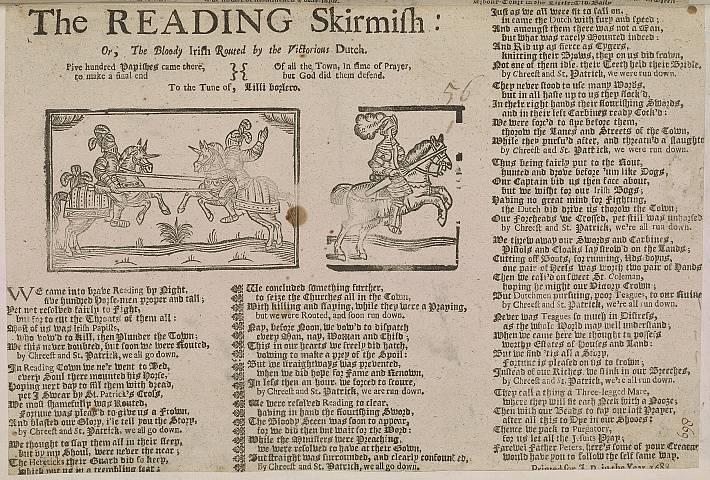 The READING Skirmish:
Or, The Bloody Irish Routed by the Victorious Dutch.
Five hundred Papishes came there,
to make a final end
Of all the Town, in time of Prayer,
but God did them defend.
To the Tune of, Lilli borlero.
56
WE came into brave Reading by Night,
five hundred Horse-men proper and tall;
Yet not resolved fairly to Fight,
but for to cut the Throats of them all:
Most of us was Irish Papists,
who vow'd to Kill, then Plunder the Town;
We this never doubted, but soon we were Routed,
by Chreest and St. Patrick, we all go down.
In Reading Town we ne'r went to Bed,
every Soul there mounted his Horse,
Hoping next day to fill them with dread,
yet I Swear by St. Patrick's Cross,
We most shamefully was Routed,
Fortune was pleas'd to give us a Frown,
And blasted our Glory, i'le tell you the Story,
by Chreest and St. Patrick, we all go down.
We thought to slay them all in their sleep,
but by my Shoul, were never the near;
The Hereticks their Guard did so keep,
which put us in a trembling fear;
We concluded something further,
to seize the Churches all in the Town,
With killing and slaying, while they were a Praying,
but we were Routed, and soon run down.
Nay, before Noon, we vow'd to dispatch
every Man, nay, Woman and Child;
This in our hearts we freely did hatch,
vowing to make a prey of the Spoil:
But we straightways was prevented,
when we did hope for Fame and Renown,
In less then an hour, we forced to scoure,
by Chreest and St. Patrick, we are run down.
We were resolved Reading to clear,
having in hand the flourishing Sword,
The Bloody Seen was soon to appear,
for we did then but wait for the Word:
While the Ministers were Preaching,
we were resolved to have at their Gown,
But straight was surrounded, and clearly confounded,
by Chreest and St. Patrick, we all go down.
Just as we all were fit to fall on,
in came the Dutch with fury and speed;
And amongst them there was not a Man,
but what was rarely Mounted indeed:
And Rid up as fierce as Tygers,
knitting their Brows, they on us did frown,
Not one of them idle, their Teeth held their Bridle,
by Chreest and St. Patrick, we were run down.
They never stood to use many Words,
but in all haste up to us they flock'd,
In their right hands their flourishing Swords,
and in their left Carbines ready Cock'd:
We were forc'd to flye before them,
thorow the Lanes and Streets of the Town,
While they pursu'd after, and threaten'd a slaughter
by Chreest and St. Patrick, we were run down.
Thus being fairly put to the Rout,
hunted and drove before 'um like Dogs,
Our Captain bid us then face about,
but we wisht for our Irish Bogs;
Having no great mind for Fighting,
the Dutch did drive us thorow the Town;
Our Foreheads we Crossed, yet still was unhorsed
by Chreest and St. Patrick, we're all run down.
We threw away our Swords and Carbines,
Pistols and Cloaks lay strow'd on the Lands;
Cutting off Boots, for running, uds-doyns,
one pair of Heels was worth two pair of Hands
Then we call'd on sweet St. Coleman,
hoping he might our Victory Crown;
But Dutchmen pursuing, poor Teagues, to our Ruine
by Chreest and St. Patrick, we're all run down.
Never was Teagues so much in Distress,
as the whole World may well understand;
When we came here we thought to possess
worthy Estates of Houses and Land:
But we find 'tis all a Story,
Fortune is pleased on us to frown;
Instead of our Riches, we stink in our Breeches,
by Chreest and St. Patrick, we're all run down.
They call a thing a Three-legged Mare,
where they will fit each Neck with a Nooze;
Then with our Beads to say our last Prayer,
after all this to Dye in our Shooes:
Thence we pack to Purgatory,
for us let all the Jesuits Pray;
Farewel Father Peters, here's some of your Creatures
would have you to follow the self same way.
Printed for J. D. in the Year, 1688